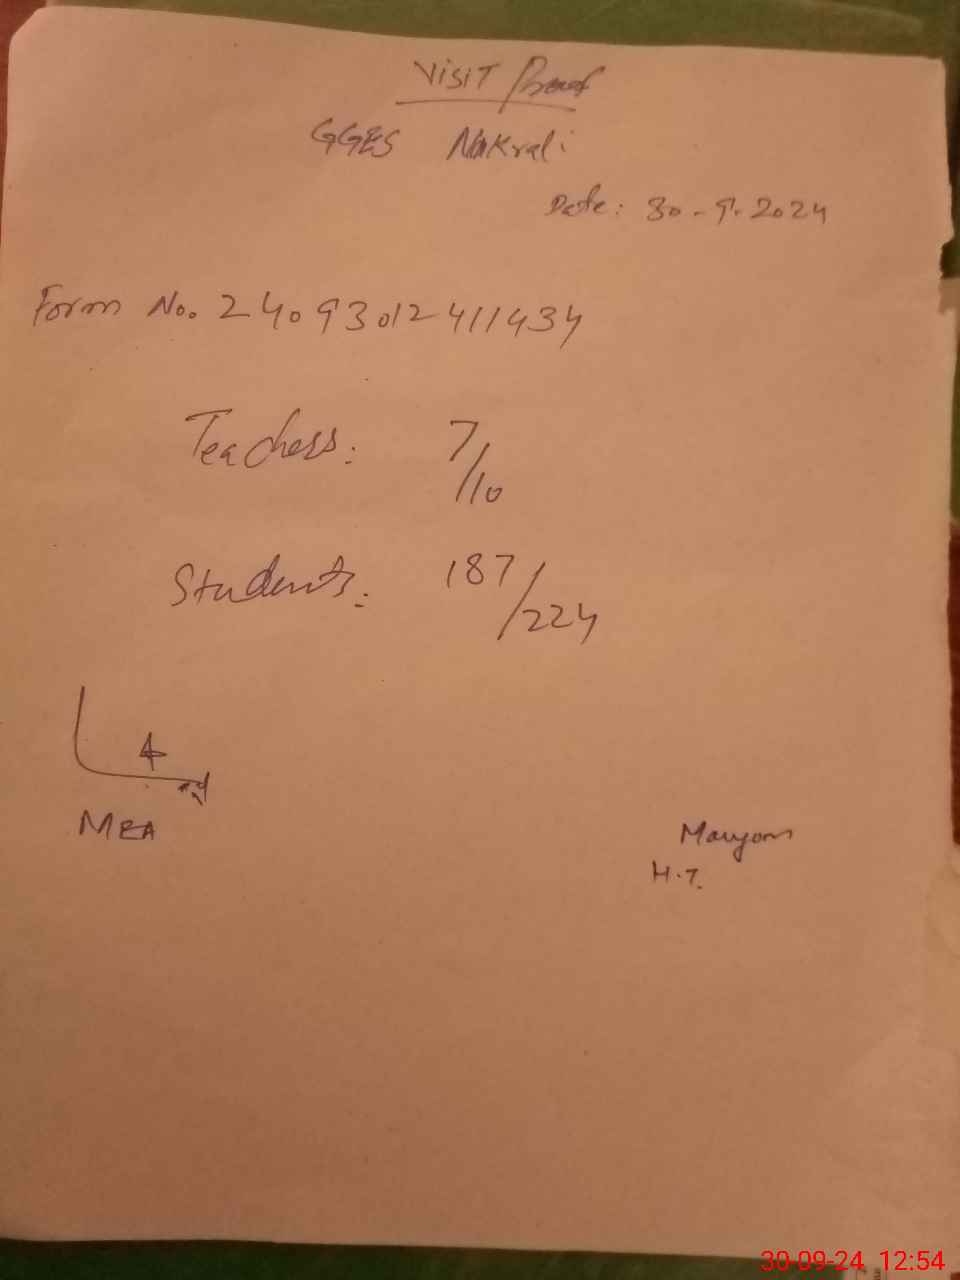 Visit Proof
GGES Nakrali
Date: 30-9-2024
Form No. 24093012411434
Teachers: 7/10
Students: 187/224
MEA
Maryam
H.T.
30-09-24 12:54